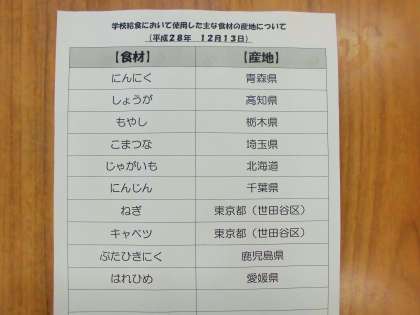 学校給食において使用した主な食材の産地について
(平成28年 12月13日)
【食材】 【産地】
にんにく 青森県
しょうが 高知県
もやし 栃木県
こまつな 埼玉県
じゃがいも 北海道
にんじん 千葉県
ねぎ 東京都(世田谷区)
キャベツ 東京都(世田谷区)
ぶたひきにく 鹿児島県
はれひめ 愛媛県